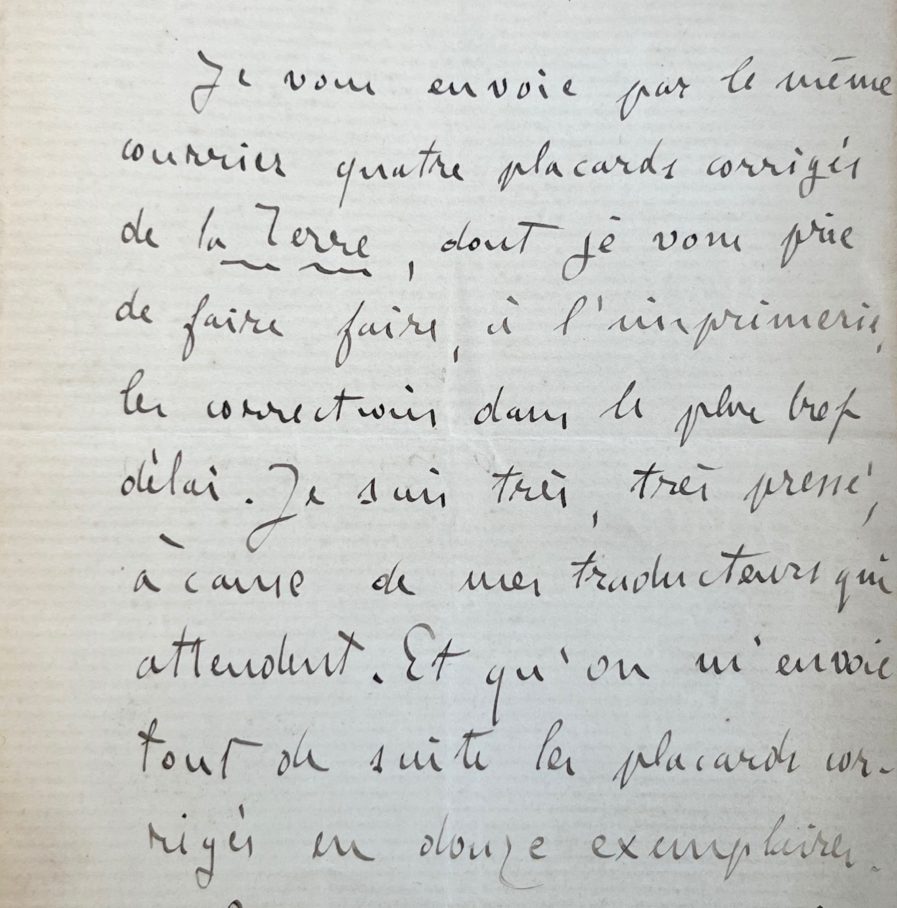 Je vous envoie par le même
courrier quatre placards corrigés
de la Terre, dont je vous prie
de faire faire, à l'imprimerie,
les corrections dans le plus bref
délai. Je suis très, très pressé,
à cause de mes traducteurs qui
attendent. Et qu'on m'envoie
tout de suite les placards cor-
rigés en douze exemplaires.